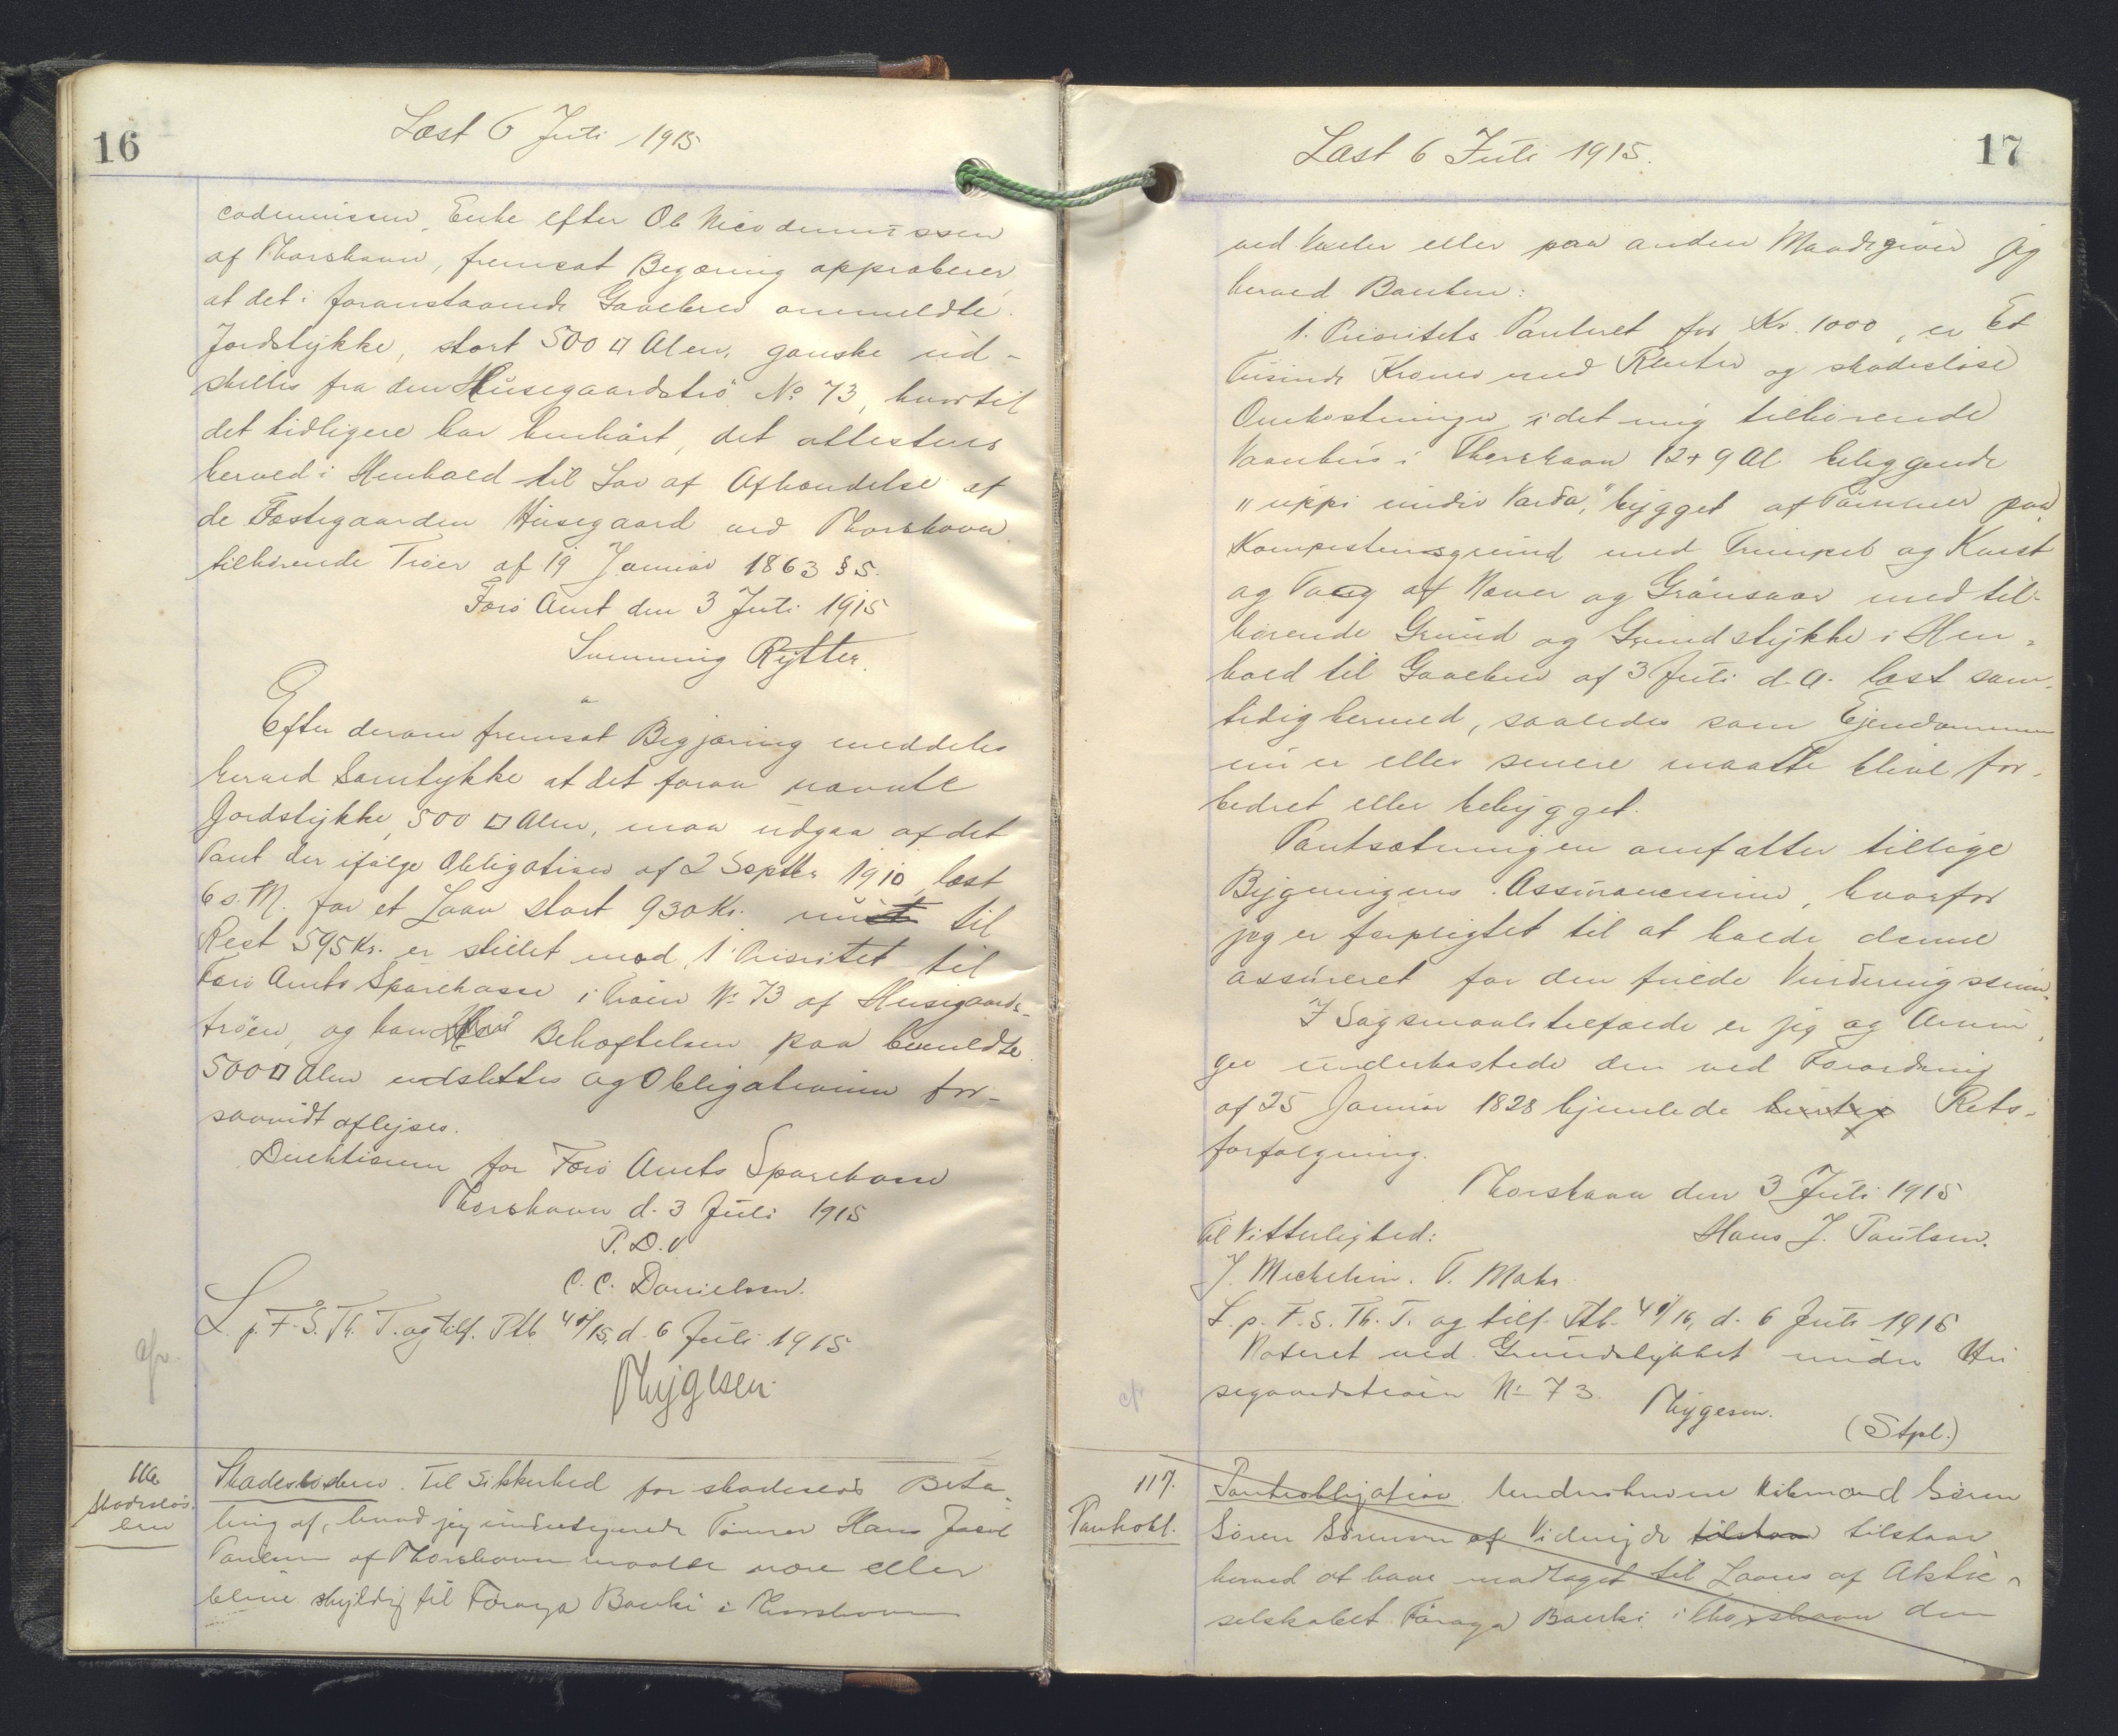 16
Læst 6 Juli 1915
codemussen, Enke efter Ole Nicodemussen
af Thorshavn, fremsat Begæring approberer,
at det i foranstaaende Gavebrev ommeldte
Jordstykke, stort 500 □ Alen, ganske ud-
skilles fra den Husegaardstrø No 73, hvortil
det tidligere har henhørt, det attesteres
herved i Henhold til Lov af Afhændelse af
de Fæstegaarden Husegaard ved Thorshavn
tilhørende Trøer af 19 Januar 1863 § 5.
Færø Amt den 3 Juli 1915
Svenning Rytter.
Efter derom fremsat Begjæring meddeles
herved Samtykke at det foran nævnte
Jordstykke, 500 □ Alen, maa udgaa af det
Pant der ifølge Obligation af 2 Septbr 1910, læst
6 s. M. for et Laan stort 930 Kr. til
Rest 595 Kr. er stillet med 1' Prioritet til
Færø Amts Sparekasse i Trøen No 73 af Husegaards-
trøen, og kan Behæftelsen paa bemeldte
500 □ Alen udslettes og Obligationen for-
saavidt aflyses.
Direktionen for Færø Amts Sparekasse
Thorshavn d. 3 Juli 1915
P. D. V.
C. C. Danielsen.
L. p. F. S. Th. T. og tilf. Ptb. d. 6 Juli 1915
Mygesen
116
Skadesløs-
brev
Skadesløsbrev. Til Sikkerhed for skadesløs Beta-
ling af, hvad jeg undertegnede Tømrer Hans Jacob
Poulsen af Thorshavn maatte være eller
blive skyldig til Føroya Banki i Thorshavn
17
Læst 6 Juli 1915.
ved Vexler eller paa anden Maade giver jeg
herved Banken:
1. Prioritets Panteret for Kr. 1000, er Et
Tusinde Kroner med Renter og skadesløse
Omkostninger i det mig tilhørende
Vaanhus i Thorshavn 12 + 9 Al beliggende
"uppi undir Varda", bygget af Tømmer paa
Kampestensgrund med Trumpet og Kvist
og Tag af Næver og Grønsvær med til-
hørende Grund og Grundstykke i Hen-
hold til Gavebrev af 3 Juli d. A. læst sam-
tidig hermed, saaledes som Ejendommen
nu er eller senere maatte blive for-
bedret eller bebygget.
Pantsætningen omfatter tillige
Bygningens Assurancesum, hvorfor
jeg er forpligtet til at holde denne
assureret for den fulde Vurderingssum.
I Sagsmaalstilfælde er jeg og Arvin-
ger underkastede den ved Forordning
af 25 Januar 1828 hjemlede hurtig Rets-
forfølgning.
Thorshavn den 3 Juli 1915
Til Vitterlighed: Hans J. Poulsen.
J. Michelsen. T. Mohr.
L. p. F. S. Th. T. og tilf. Ptb. d. 6 Juli 1915
Noteret ved Grundstykket under Hu
segaardstrøen No 73. Mygesen.
(Stpl.)
117.
Pantobl.
Pantobligation. Underskrevne Kibmand Søren
Søren Sørensen af Viderejde tilstaar tilstaar
herved at have modtaget til Laans af Aktie-
selskabet Føroya Banki i Thorshavn den